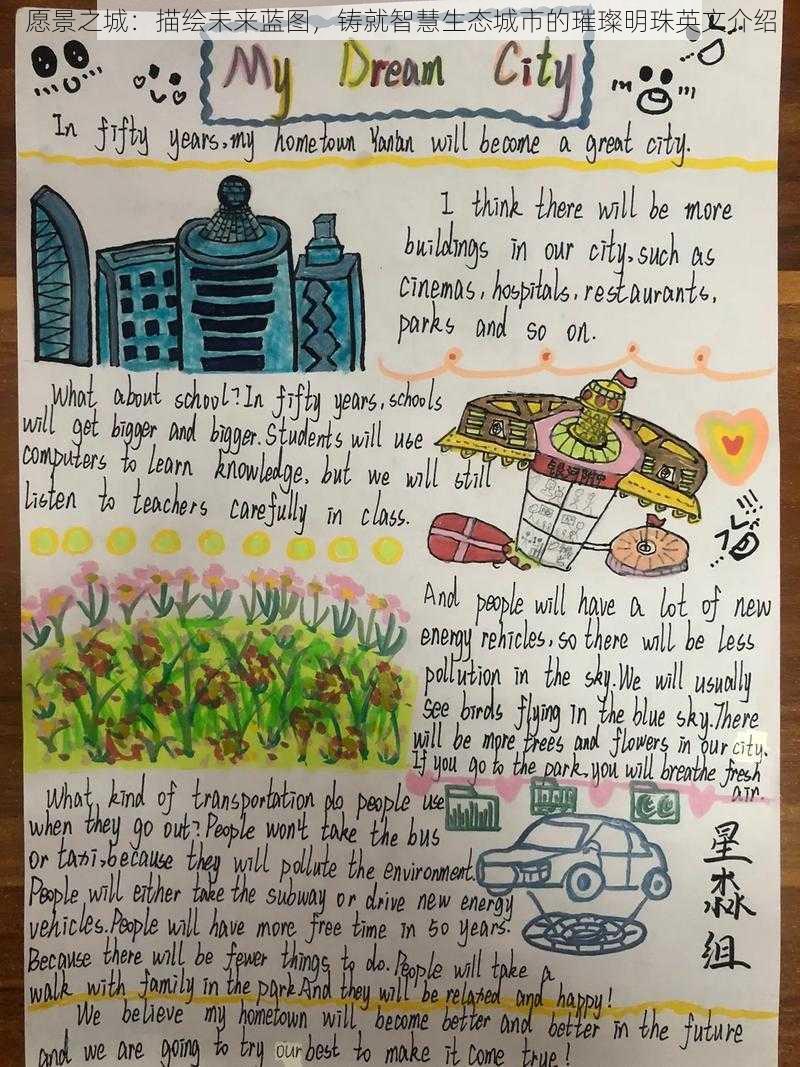 愿景之城：描绘未来蓝图，铸就智慧生态城市的璀璨明珠英文介绍
My Dream City
In fifty years, my hometown Yantan will become a great city.
I think there will be more
buildings in our city, such as
cinemas, hospitals, restaurants,
parks and so on.
What about school? In fifty years, schools
will get bigger and bigger. Students will use
computers to learn knowledge, but we will still
listen to teachers carefully in class.
And people will have a lot of new
energy rehicles, so there will be less
pollution in the sky. We will usually
see birds flying in the blue sky. There
will be more trees and flowers in our city.
If you go to the park, you will breathe fresh
air.
What kind of transportation do people use
when they go out? People won't take the bus
or taxi, because they will pollute the environment.
People will either take the subway or drive new energy
vehicles. People will have more free time in 50 years.
Because there will be fewer things to do. People will take a
walk with family in the park. And they will be relaxed and happy!
We believe my hometown will become better and better in the future
and we are going to try our best to make it come true!
星
淼
组